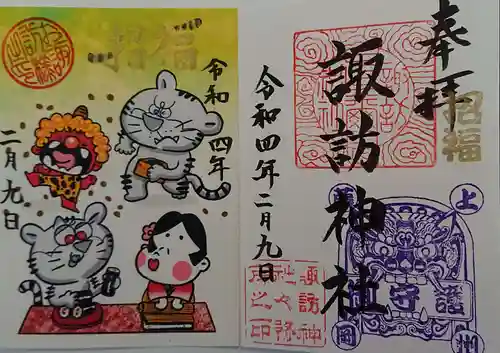 奉拝
招福
諏訪神社
令和四年二月九日
上
州
護
守
岡
諏訪神
社々務
所之印
招福
令和四年
二月九日